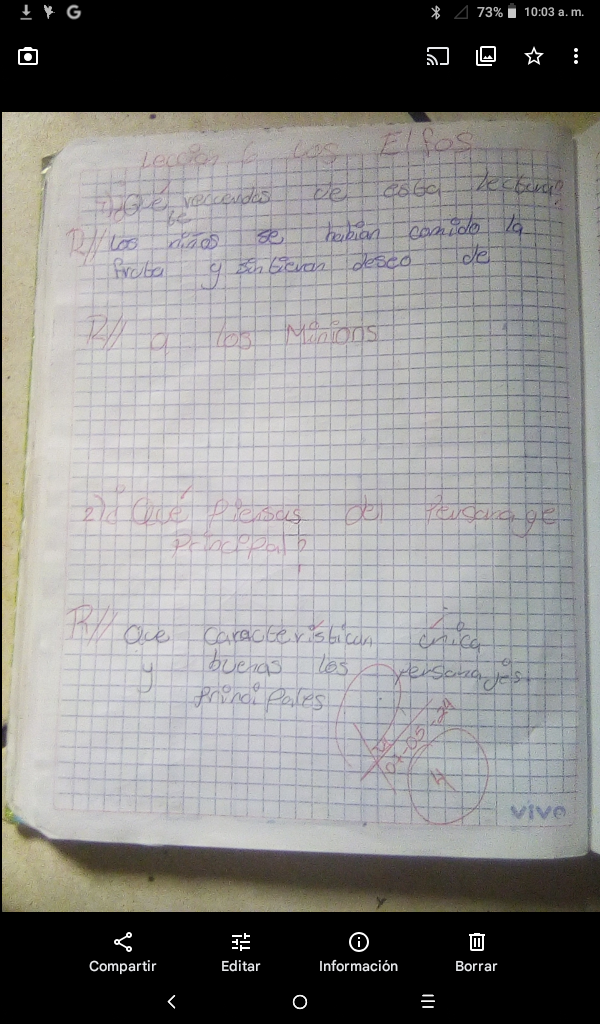 73% 10:03 a. m.
Lección 6 Los Elfos
1) ¿Qué te recuerdas de esta lectura?
R// Los niños se habían comido la
fruta y sintieron deseo de
R// a los Minions
2) ¿Qué Piensas del Personage
Principal?
R// Que característican única
y buenas los personajes
principales
vivo
Compartir Editar Información Borrar